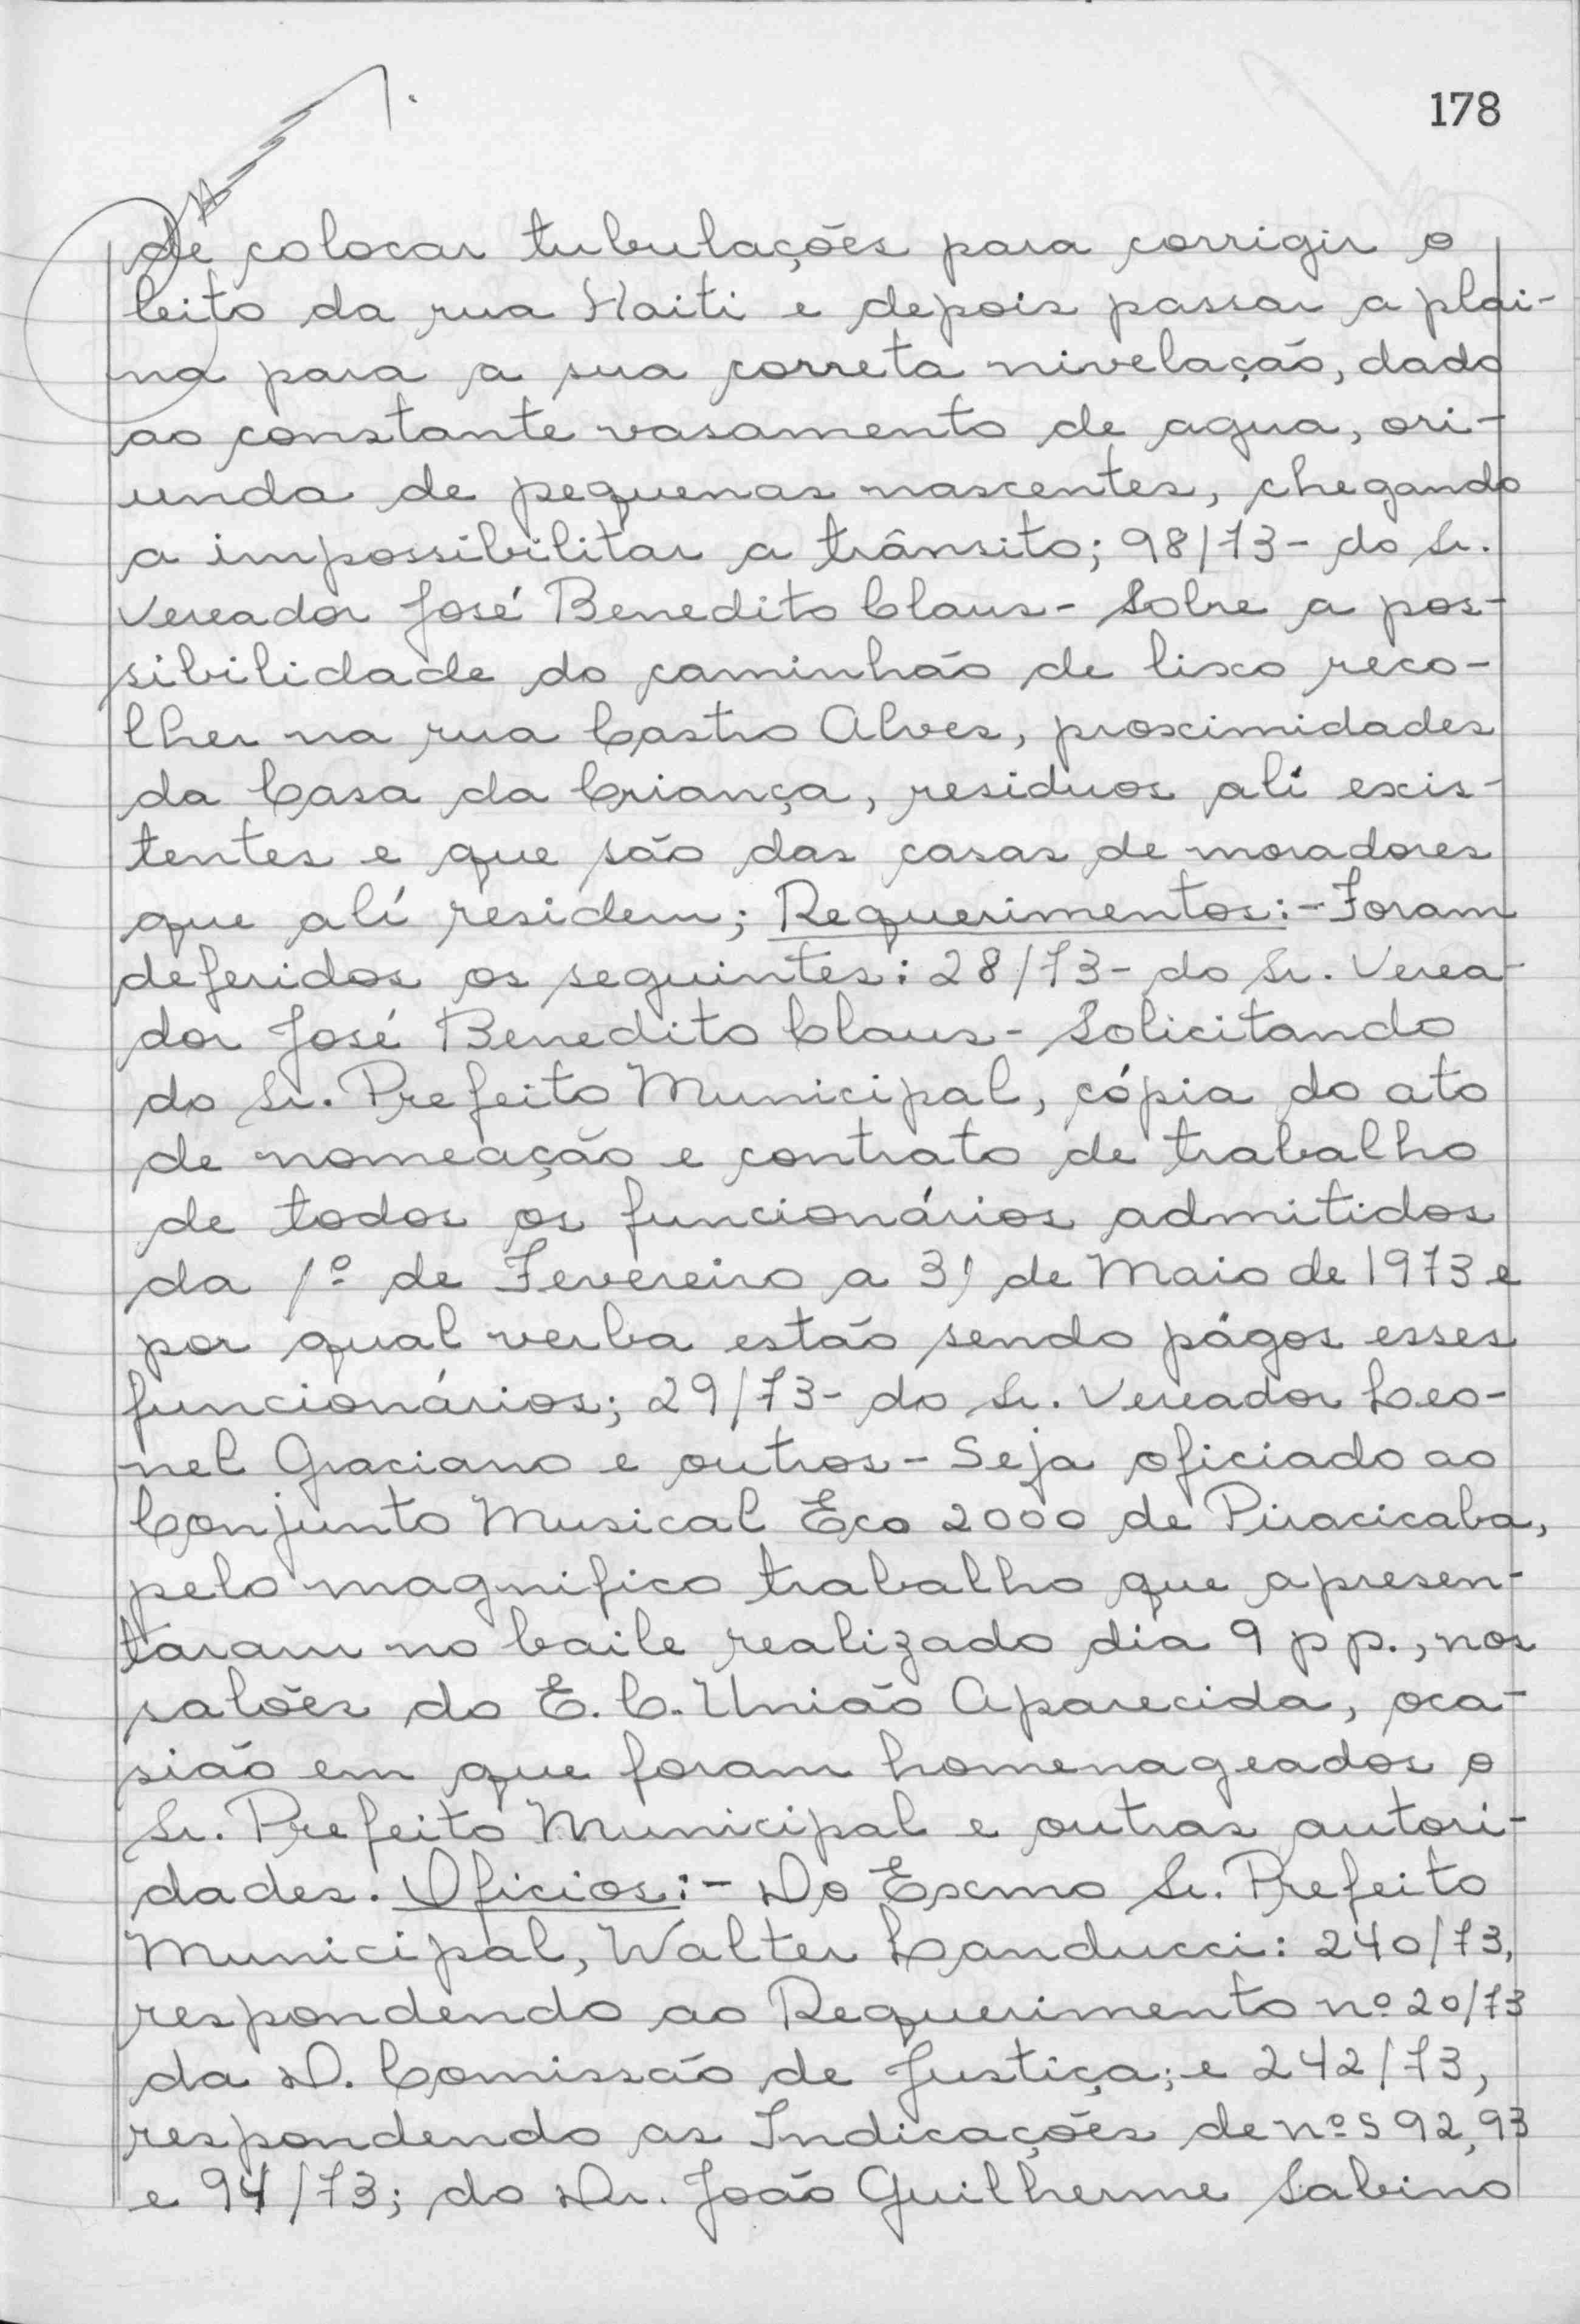 178
de colocar tubulações para corrigir o
leito da rua Haiti e depois passar a plai-
na para a sua correta nivelação, dado
ao constante vasamento de agua, ori-
unda de pequenas nascentes, chegando
a impossibilitar a trânsito; 98/73 - do Sr.
Vereador José Benedito Claus - Sobre a pos-
sibilidade do caminhão de lixo reco-
lher na rua Castro Alves, proximidades
da Casa da Criança, residuos alí exis-
tentes e que são das casas de moradores
que alí residem; Requerimentos:- Foram
deferidos os seguintes: 28/73 - do Sr. Verea-
dor José Benedito Claus - Solicitando
do Sr. Prefeito Municipal, cópia do ato
de nomeação e contrato de trabalho
de todos os funcionários admitidos
da 1º de Fevereiro a 31 de Maio de 1973 e
por qual verba estão sendo págos esses
funcionários; 29/73 - do Sr. Vereador Leo-
nel Graciano e outros - Seja oficiado ao
Conjunto Musical Eco 2000 de Piracicaba,
pelo magnifico trabalho que apresen-
taram no baile realizado dia 9 pp., nos
salões do E. C. União Aparecida, oca-
sião em que foram homenageados o
Sr. Prefeito Municipal e outras autori-
dades. Oficios:- Do Exmo Sr. Prefeito
Municipal, Walter Landucci: 240/73,
respondendo ao Requerimento nº 20/73
da D. Comissão de Justiça; e 242/73,
respondendo as Indicações de nºs 92, 93
e 94/73; do Dr. João Guilherme Sabino